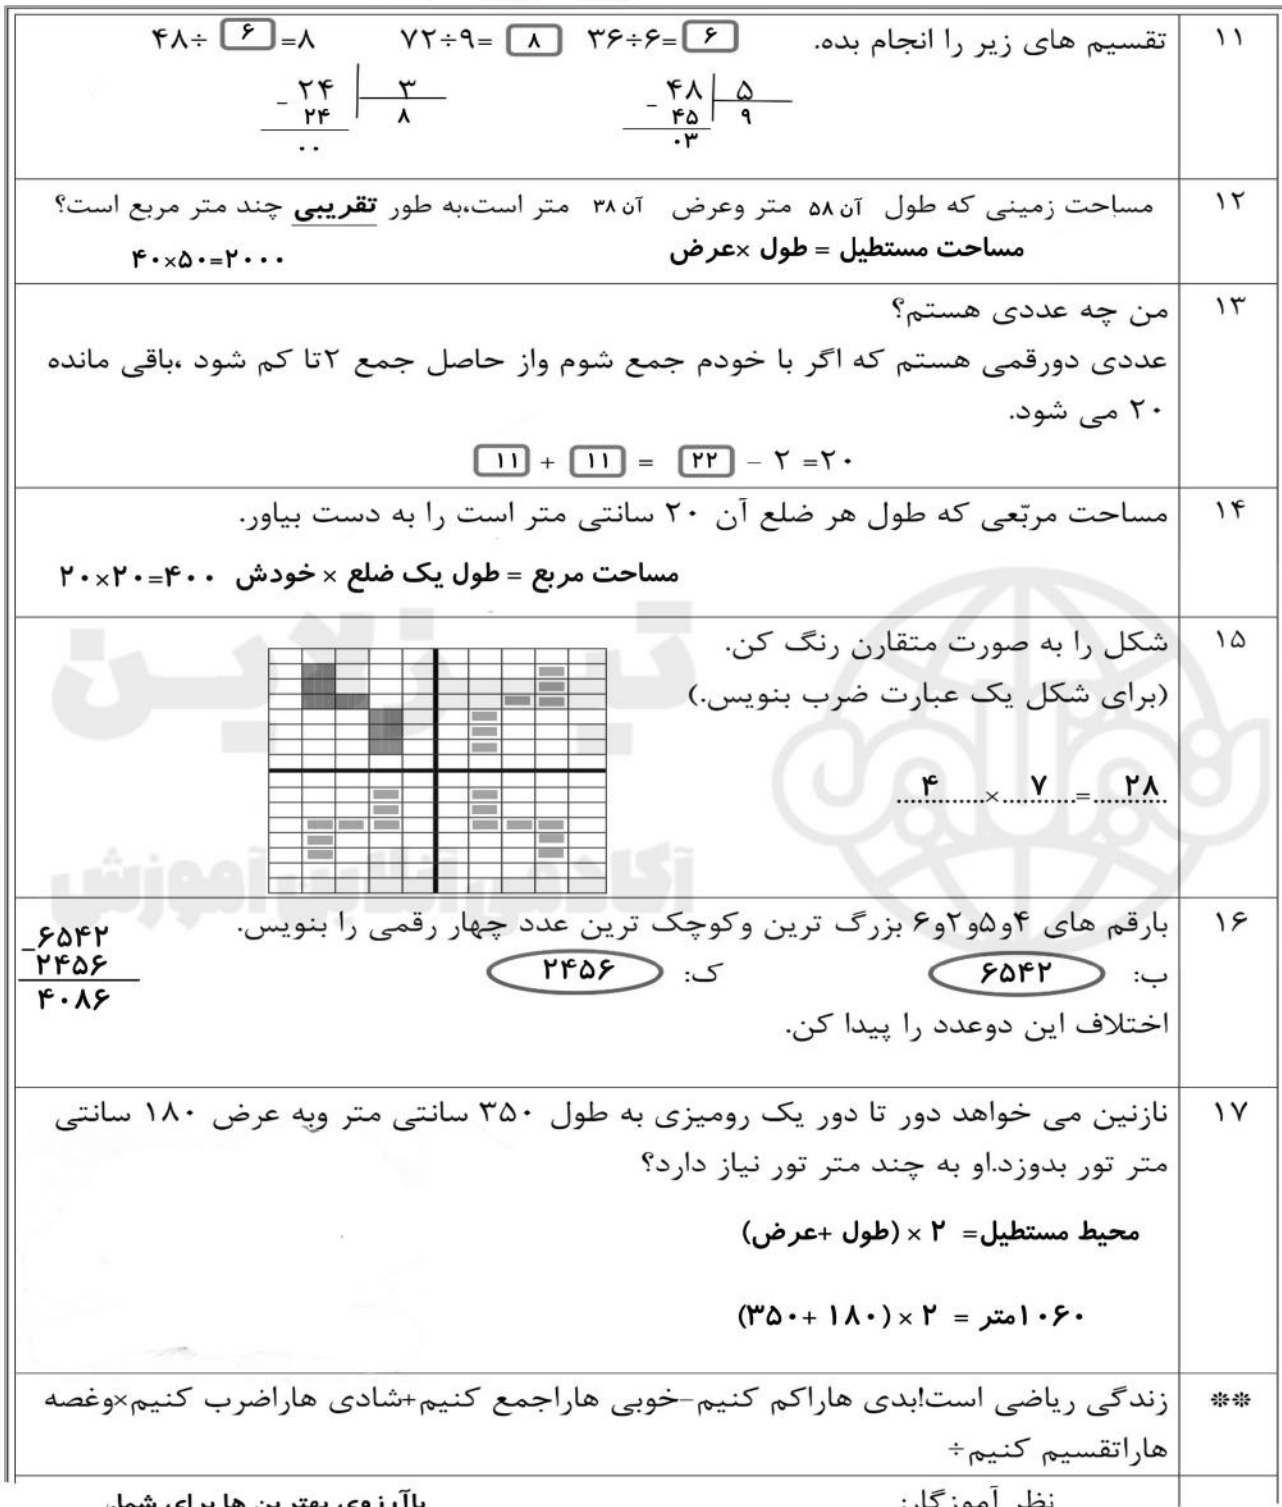 ۱۱ تقسیم های زیر را انجام بده. ۳۶÷۶= ۶ ۷۲÷۹= ۸ ۴۸÷ ۶ =۸
۴۸ ۵
- ۴۵ ۹
۰۳
۲۴ ۳
- ۲۴ ۸
۰۰
۱۲ مساحت زمینی که طول آن ۵۸ متر وعرض آن ۳۸ متر است،به طور تقریبی چند متر مربع است؟
مساحت مستطیل = طول ×عرض ۴۰×۵۰=۲۰۰۰
۱۳ من چه عددی هستم؟
عددی دورقمی هستم که اگر با خودم جمع شوم واز حاصل جمع ۲تا کم شود ،باقی مانده
۲۰ می شود.
۱۱ + ۱۱ = ۲۲ - ۲ =۲۰
۱۴ مساحت مربّعی که طول هر ضلع آن ۲۰ سانتی متر است را به دست بیاور.
مساحت مربع = طول یک ضلع × خودش ۲۰×۲۰=۴۰۰
۱۵ شکل را به صورت متقارن رنگ کن.
(برای شکل یک عبارت ضرب بنویس.)
۴ × ۷ = ۲۸
تیزلاین
آکادمی آنلاین آموزش
۱۶ بارقم های ۴و۵و۲و۶ بزرگ ترین وکوچک ترین عدد چهار رقمی را بنویس.
ب: ۶۵۴۲ ک: ۲۴۵۶
اختلاف این دوعدد را پیدا کن.
۶۵۴۲
- ۲۴۵۶
۴۰۸۶
۱۷ نازنین می خواهد دور تا دور یک رومیزی به طول ۳۵۰ سانتی متر وبه عرض ۱۸۰ سانتی
متر تور بدوزد.او به چند متر تور نیاز دارد؟
محیط مستطیل= ۲ × (طول +عرض)
(۳۵۰+ ۱۸۰) × ۲ = ۱۰۶۰متر
** زندگی ریاضی است!بدی هاراکم کنیم-خوبی هاراجمع کنیم+شادی هاراضرب کنیم×وغصه
هاراتقسیم کنیم÷
نظر آموزگار: باآرزوی بهترین ها برای شما.